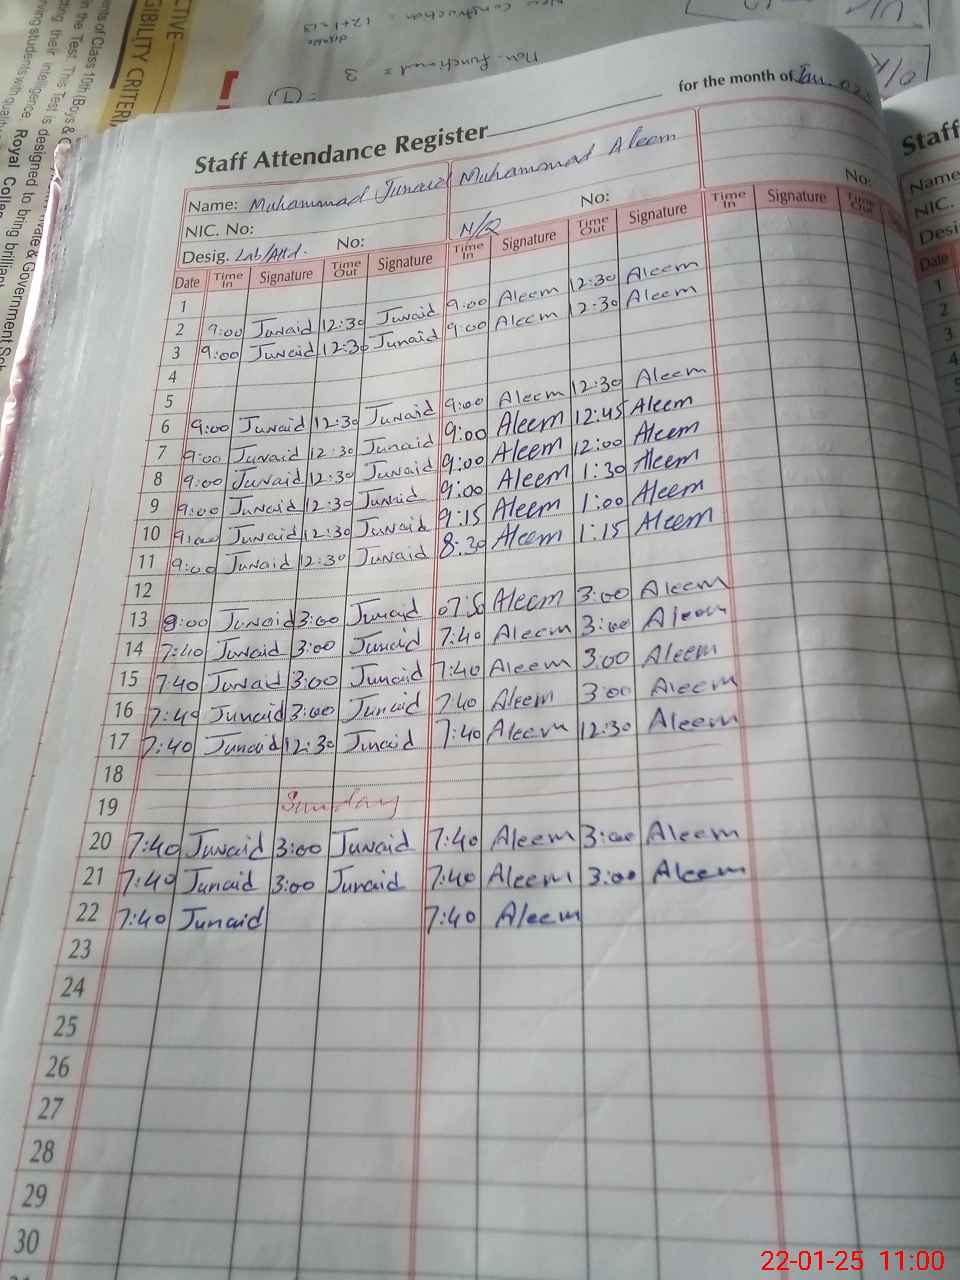 for the month of Jan.
Staff Attendance Register
Name: Muhammad Junaid Muhammad Aleem
NIC. No: No: No:
Desig. Lab/Attd. No: N/Q
Date Time In Signature Time Out Signature Time In Signature Time Out Signature Time In Signature Time Out
1
2 9:00 Junaid 12:30 Junaid 9:00 Aleem 12:30 Aleem
3 9:00 Junaid 12:30 Junaid 9:00 Aleem 12:30 Aleem
4
5
6 9:00 Junaid 12:30 Junaid 9:00 Aleem 12:30 Aleem
7 9:00 Junaid 12:30 Junaid 9:00 Aleem 12:45 Aleem
8 9:00 Junaid 12:30 Junaid 9:00 Aleem 12:00 Aleem
9 9:00 Junaid 12:30 Junaid 9:00 Aleem 1:30 Aleem
10 9:00 Junaid 12:30 Junaid 9:15 Aleem 1:00 Aleem
11 9:00 Junaid 12:30 Junaid 8:30 Aleem 1:15 Aleem
12
13 8:00 Junaid 3:00 Junaid 07:50 Aleem 3:00 Aleem
14 7:40 Junaid 3:00 Junaid 7:40 Aleem 3:00 Aleem
15 7:40 Junaid 3:00 Junaid 7:40 Aleem 3:00 Aleem
16 7:40 Junaid 3:00 Junaid 7:40 Aleem 3:00 Aleem
17 7:40 Junaid 12:30 Junaid 7:40 Aleem 12:30 Aleem
18
19 Sunday
20 7:40 Junaid 3:00 Junaid 7:40 Aleem 3:00 Aleem
21 7:40 Junaid 3:00 Junaid 7:40 Aleem 3:00 Aleem
22 7:40 Junaid 7:40 Aleem
23
24
25
26
27
28
29
30
Staff
Name
NIC.
Desi
Date
1
2
3
4
Non-functional = 3
new construction = 12+1=13
GIBILITY CRITERI
Royal Colle
22-01-25 11:00